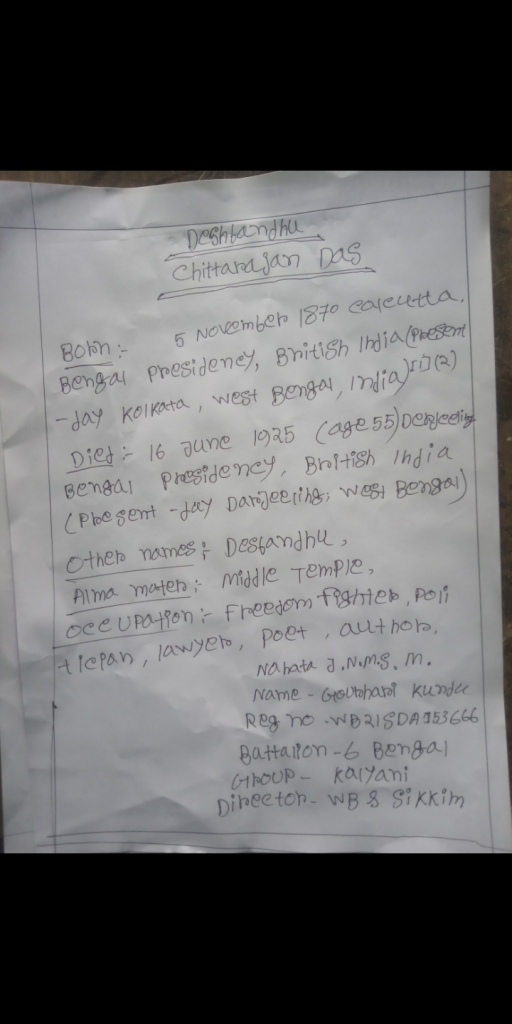 Deshbandhu
Chittarajan Das
Born :- 5 November 1870 Calcutta,
Bengal Presidency, British India (Present
-day Kolkata, West Bengal, India)[1](2)
Died :- 16 June 1925 (age 55) Derjeeling
Bengal Presidency, British India
(Present -day Darjeeling, West Bengal)
Other names :- Desbandhu,
Alma mater :- Middle Temple,
Occupation :- Freedom fighter, Poli
ticpan, lawyer, Poet, author.
Nahata J.N.M.S.M.
Name - Kundu
Reg no -WB21SDA153666
Battalion -6 Bengal
Group - Kalyani
Director- WB & Sikkim